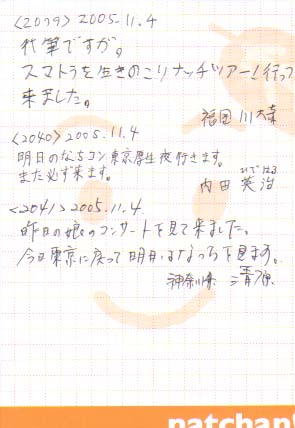 <2039> 2005.11.4
代筆ですが。
スマトラを生きのこりナッチツアー!行って
来ました。
福岡 川大幸
<2040> 2005.11.4
明日のなちコン東京厚生夜行きます。
また必ず来ます。
内田 英治
ひではる
<2041> 2005.11.4.
昨日の娘のコンサートを見て来ました。
今日東京に戻って明日はなっちを見ます。
神奈川県 清原
patchan